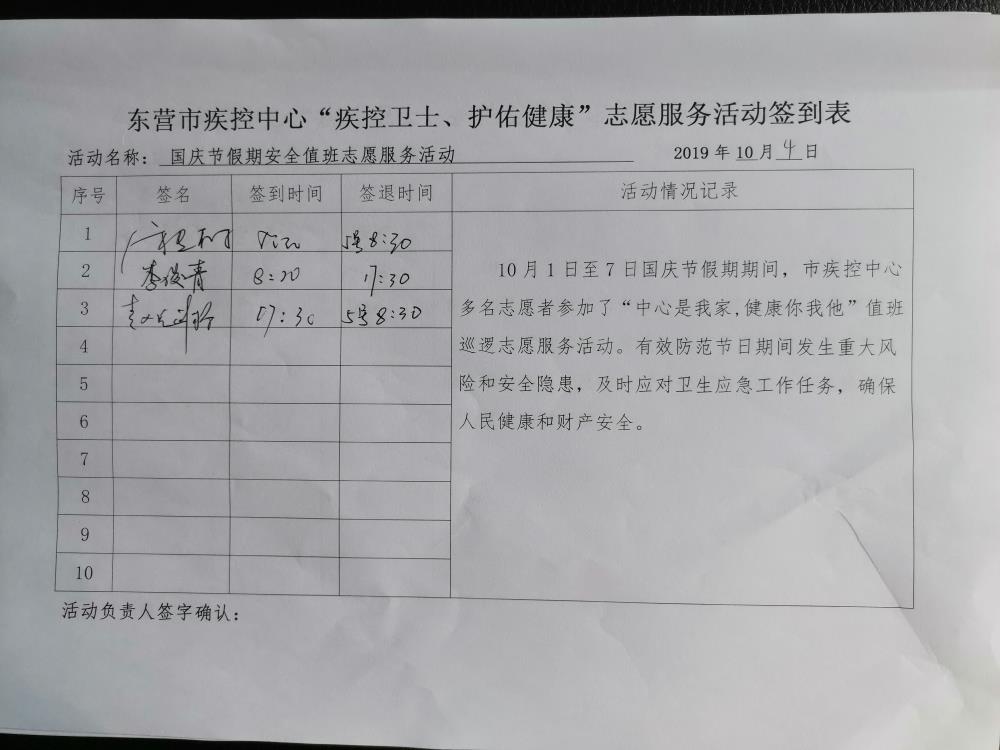 东营市疾控中心“疾控卫士、护佑健康”志愿服务活动签到表
活动名称：国庆节假期安全值班志愿服务活动 2019年10月4日
序号 签名 签到时间 签退时间 活动情况记录
1 5号8:30
2 李俊青 8:20 17:30
3 07:30 5号8:30
4
5
6
7
8
9
10
10月1日至7日国庆节假期期间，市疾控中心
多名志愿者参加了“中心是我家,健康你我他”值班
巡逻志愿服务活动。有效防范节日期间发生重大风
险和安全隐患，及时应对卫生应急工作任务，确保
人民健康和财产安全。
活动负责人签字确认：